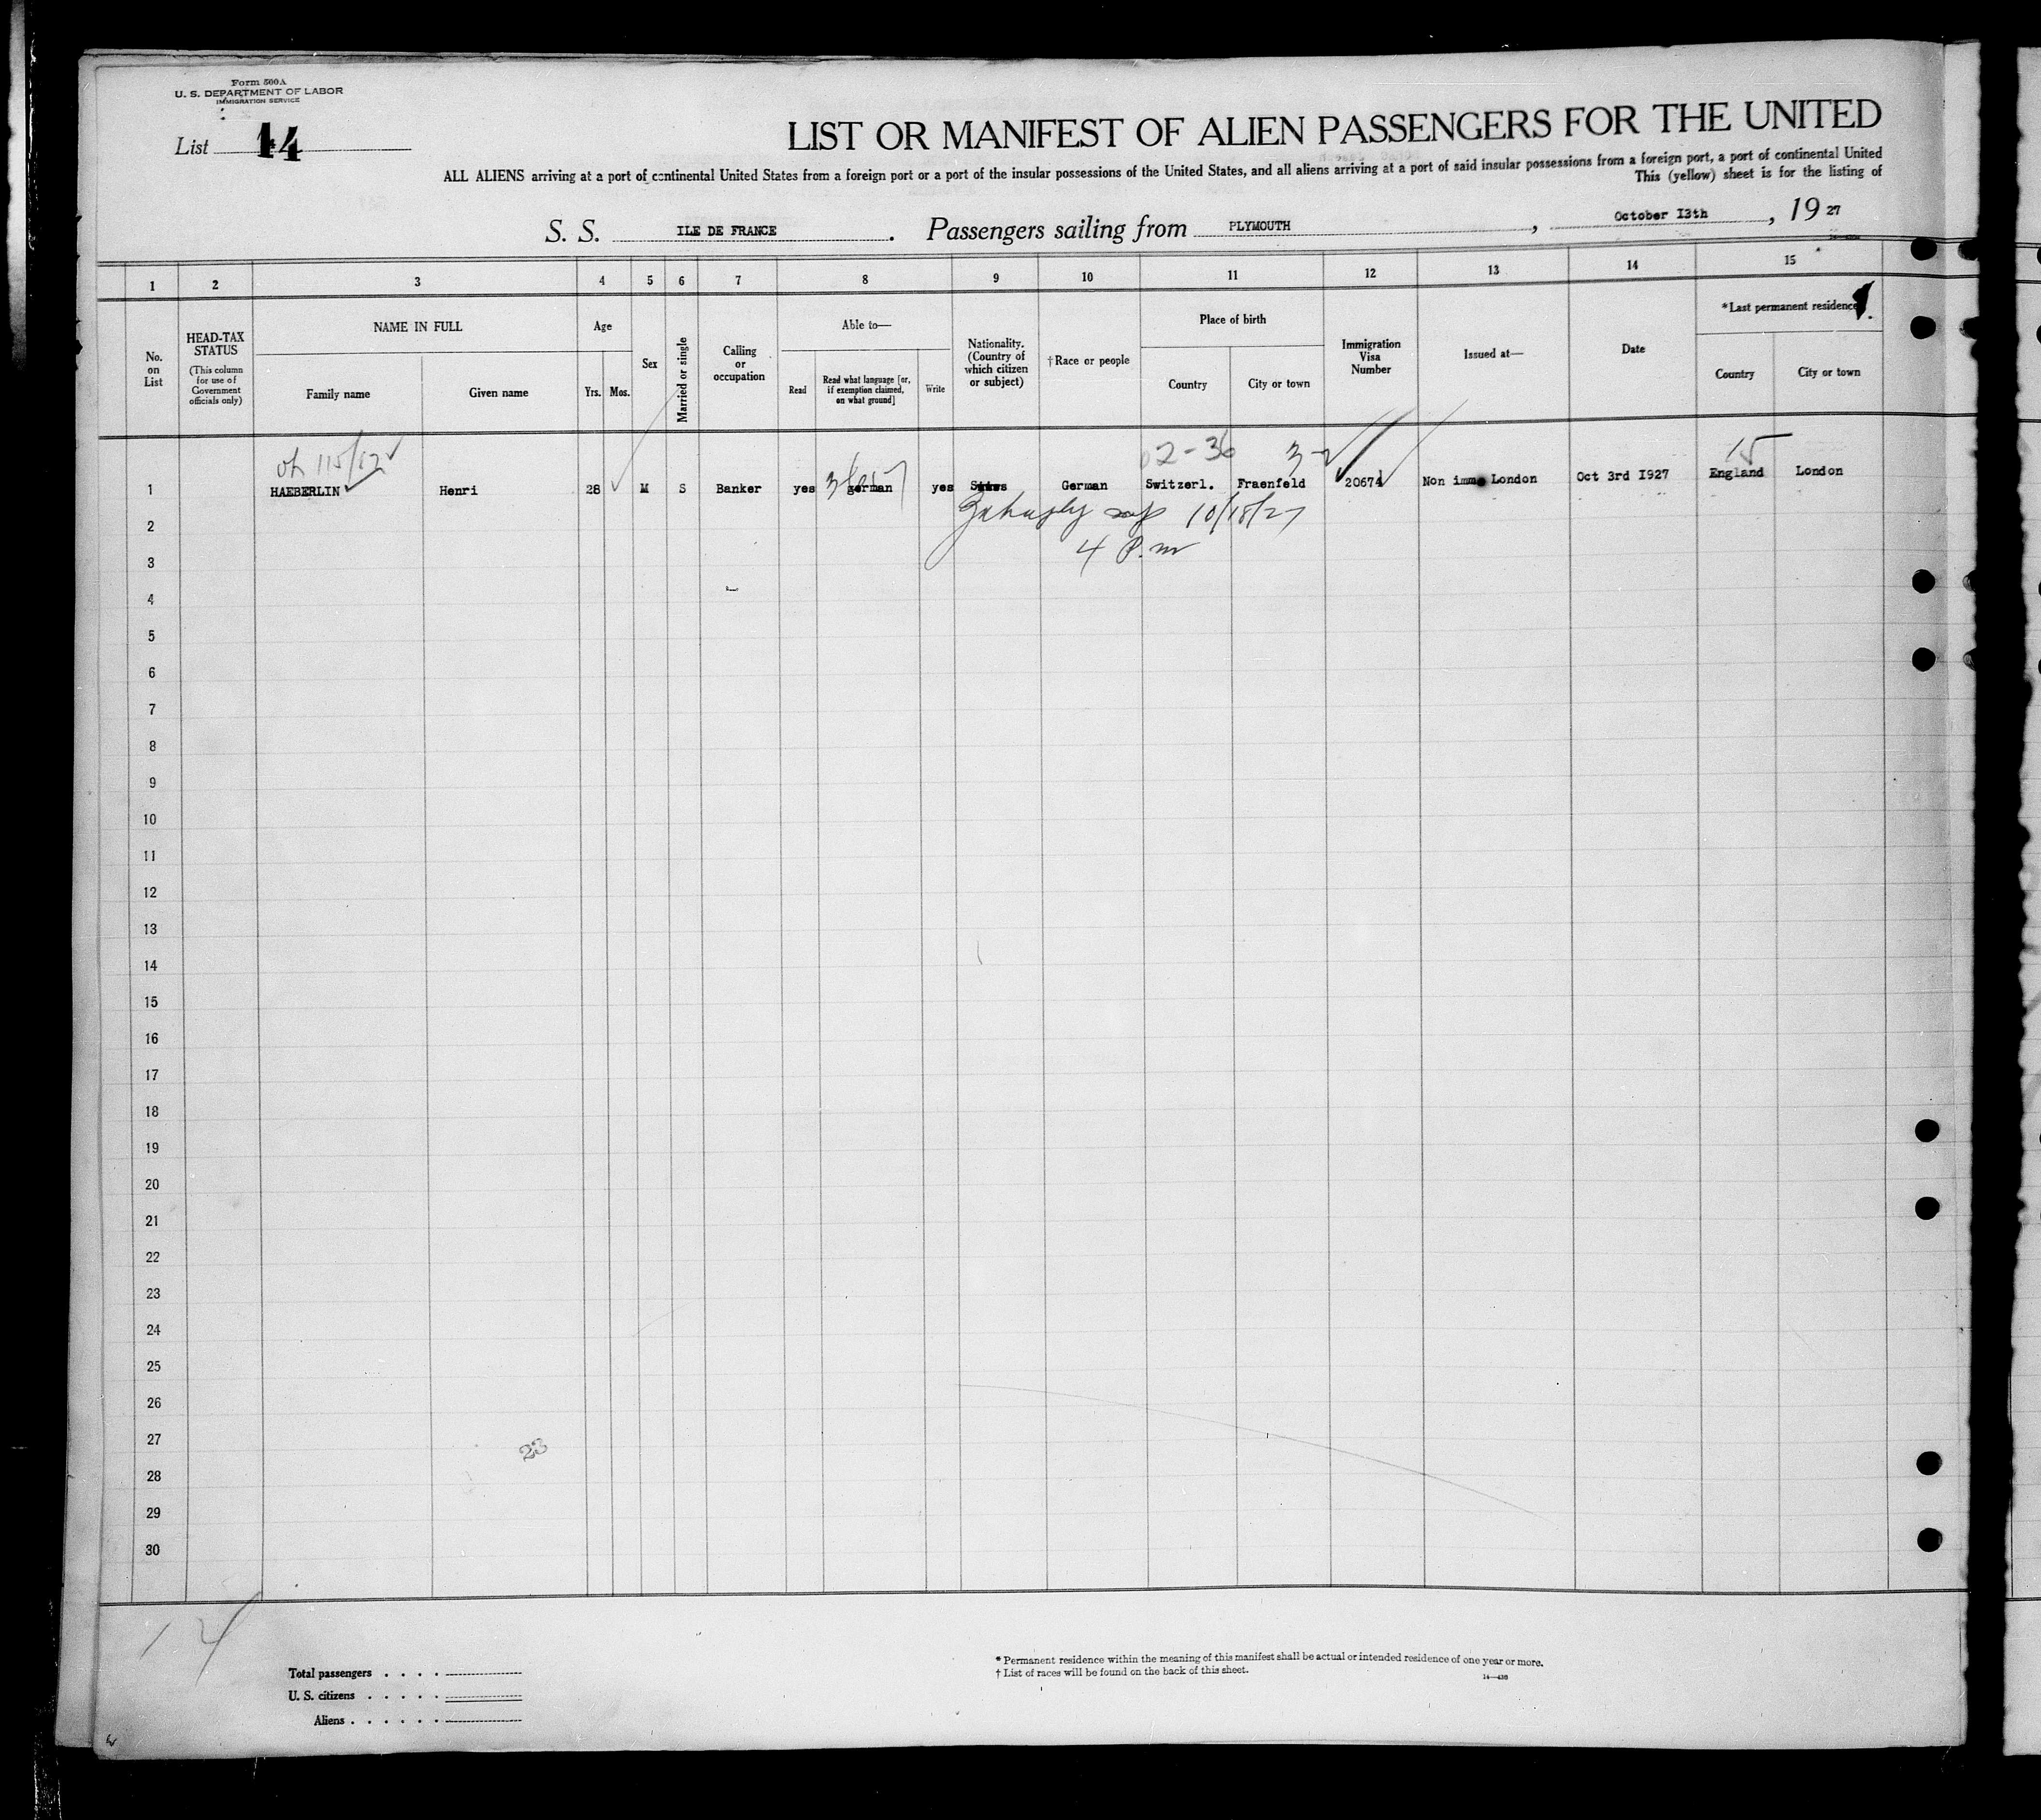 Form 500A
U. S. DEPARTMENT OF LABOR
IMMIGRATION SERVICE
List 14
LIST OR MANIFEST OF ALIEN PASSENGERS FOR THE UNITED
ALL ALIENS arriving at a port of continental United States from a foreign port or a port of the insular possessions of the United States, and all aliens arriving at a port of said insular possessions from a foreign port, a port of continental United
This (yellow) sheet is for the listing of
S. S. ILE DE FRANCE. Passengers sailing from PLYMOUTH, October I3th, 19 27
1 2 3 4 5 6 7 8 9 10 11 12 13 14 15
No. on List
HEAD-TAX STATUS
(This column for use of Government officials only)
NAME IN FULL
Family name
Given name
Age
Yrs. Mos.
Sex
Married or single
Calling or occupation
Able to—
Read
Read what language [or, if exemption claimed, on what ground]
Write
Nationality. (Country of which citizen or subject)
†Race or people
Place of birth
Country
City or town
Immigration Visa Number
Issued at—
Date
*Last permanent residence
Country
City or town
02-36 3-2 15
1 HAEBERLIN Henri 28 M S Banker yes german yes German Switzerl. Fraenfeld 20674 Non imm London Oct 3rd I927 England London
10/18/27
2
4 P.m
3
4
5
6
7
8
9
10
11
12
13
14
15
16
17
18
19
20
21
22
23
24
25
26
27
23
28
29
30
14
Total passengers
U. S. citizens
Aliens
* Permanent residence within the meaning of this manifest shall be actual or intended residence of one year or more.
† List of races will be found on the back of this sheet.
14—430